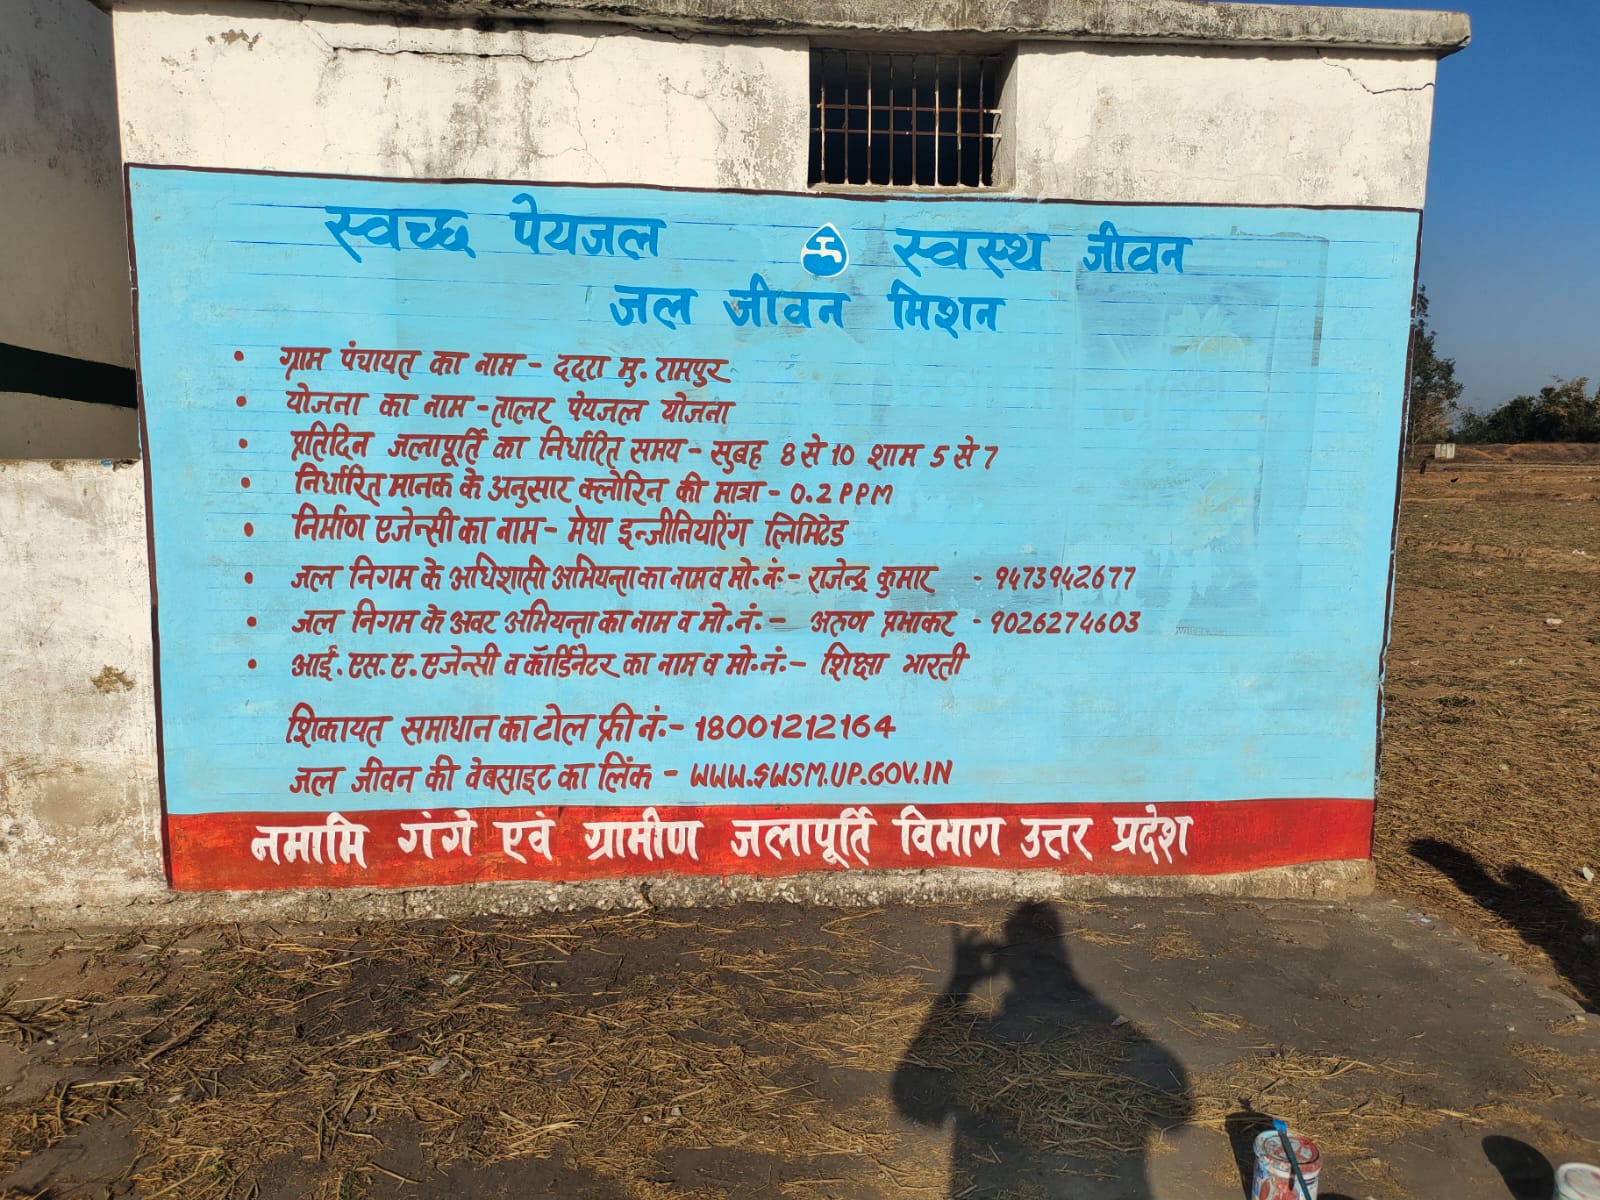 स्वच्छ पेयजल स्वस्थ जीवन
जल जीवन मिशन
• ग्राम पंचायत का नाम - ददरा मु. रामपुर
• योजना का नाम - तालर पेयजल योजना
• प्रतिदिन जलापूर्ति का निर्धारित समय - सुबह 8 से 10 शाम 5 से 7
• निर्धारित मानक के अनुसार क्लोरिन की मात्रा - 0.2 PPM
• निर्माण एजेन्सी का नाम - मेघा इन्जीनियरिंग लिमिटेड
• जल निगम के अधिशासी अभियन्ता का नाम व मो.नं.- राजेन्द्र कुमार - 9473942677
• जल निगम के अवर अभियन्ता का नाम व मो.नं. - अरुण प्रभाकर - 9026274603
• आई.एस.ए. एजेन्सी व कॉर्डिनेटर का नाम व मो.नं.- शिक्षा भारती
शिकायत समाधान का टोल फ्री नं.- 18001212164
जल जीवन की वेबसाइट का लिंक - WWW.SWSM.UP.GOV.IN
नमामि गंगे एवं ग्रामीण जलापूर्ति विभाग उत्तर प्रदेश